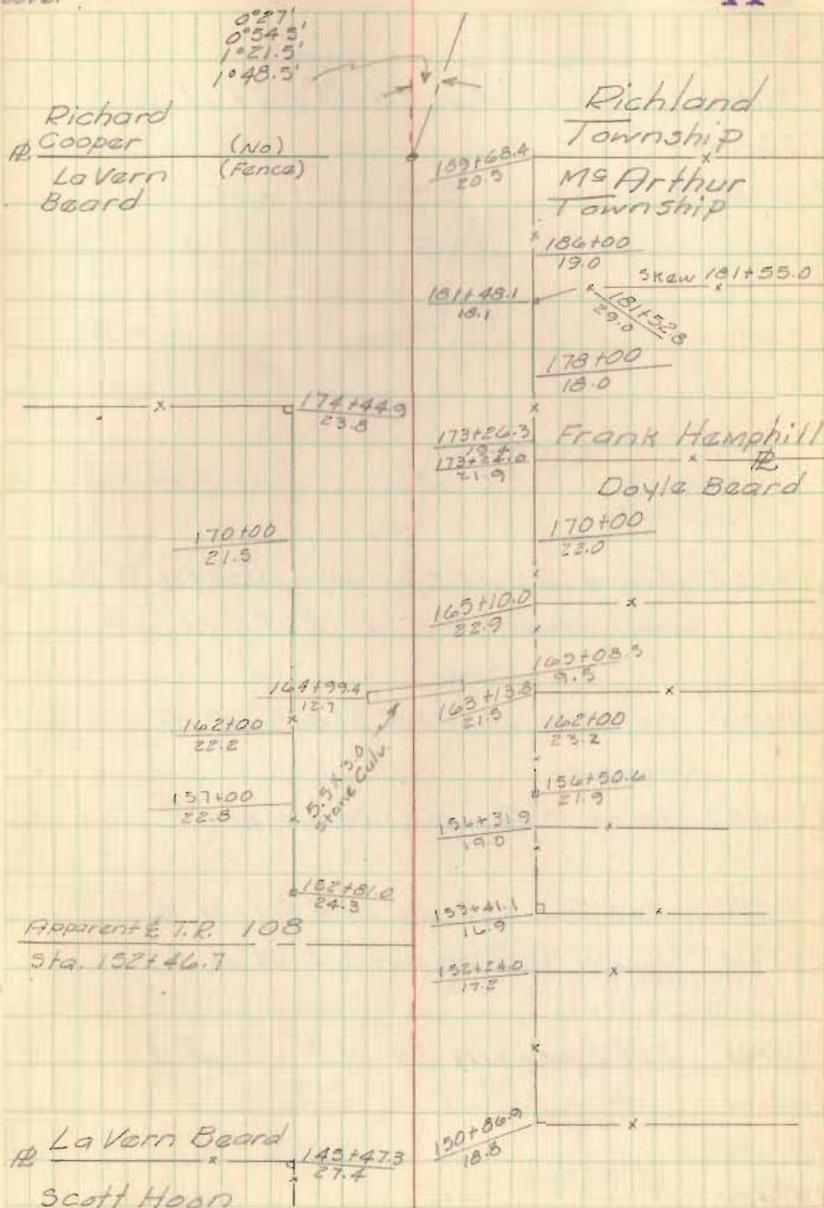 0°27'
0°54.5'
1°21.5'
1°48.5'
Richard
Cooper
(No)
(Fence)
PL
La Vern
Beard
Richland
Township
189+68.4
20.5
McArthur
Township
186+00
19.0
Skew 181+55.0
181+48.1
18.1
181+52.8
29.0
178+00
18.0
174+44.9
23.8
173+26.3
19.4
173+24.0
21.9
Frank Hemphill
PL
Doyle Beard
170+00
21.5
170+00
22.0
165+10.0
22.9
165+08.5
9.5
164+99.4
12.7
163+13.8
21.5
162+00
22.2
162+00
23.2
5.5 X 3.0
Stone Culv.
157+00
22.8
156+50.6
21.9
154+31.9
19.0
152+81.0
24.3
153+41.1
16.9
Apparent ₵ T.R. 108
Sta. 152+46.7
152+24.0
17.2
150+86.9
18.8
PL
La Vern Beard
145+47.3
27.4
Scott Hoon